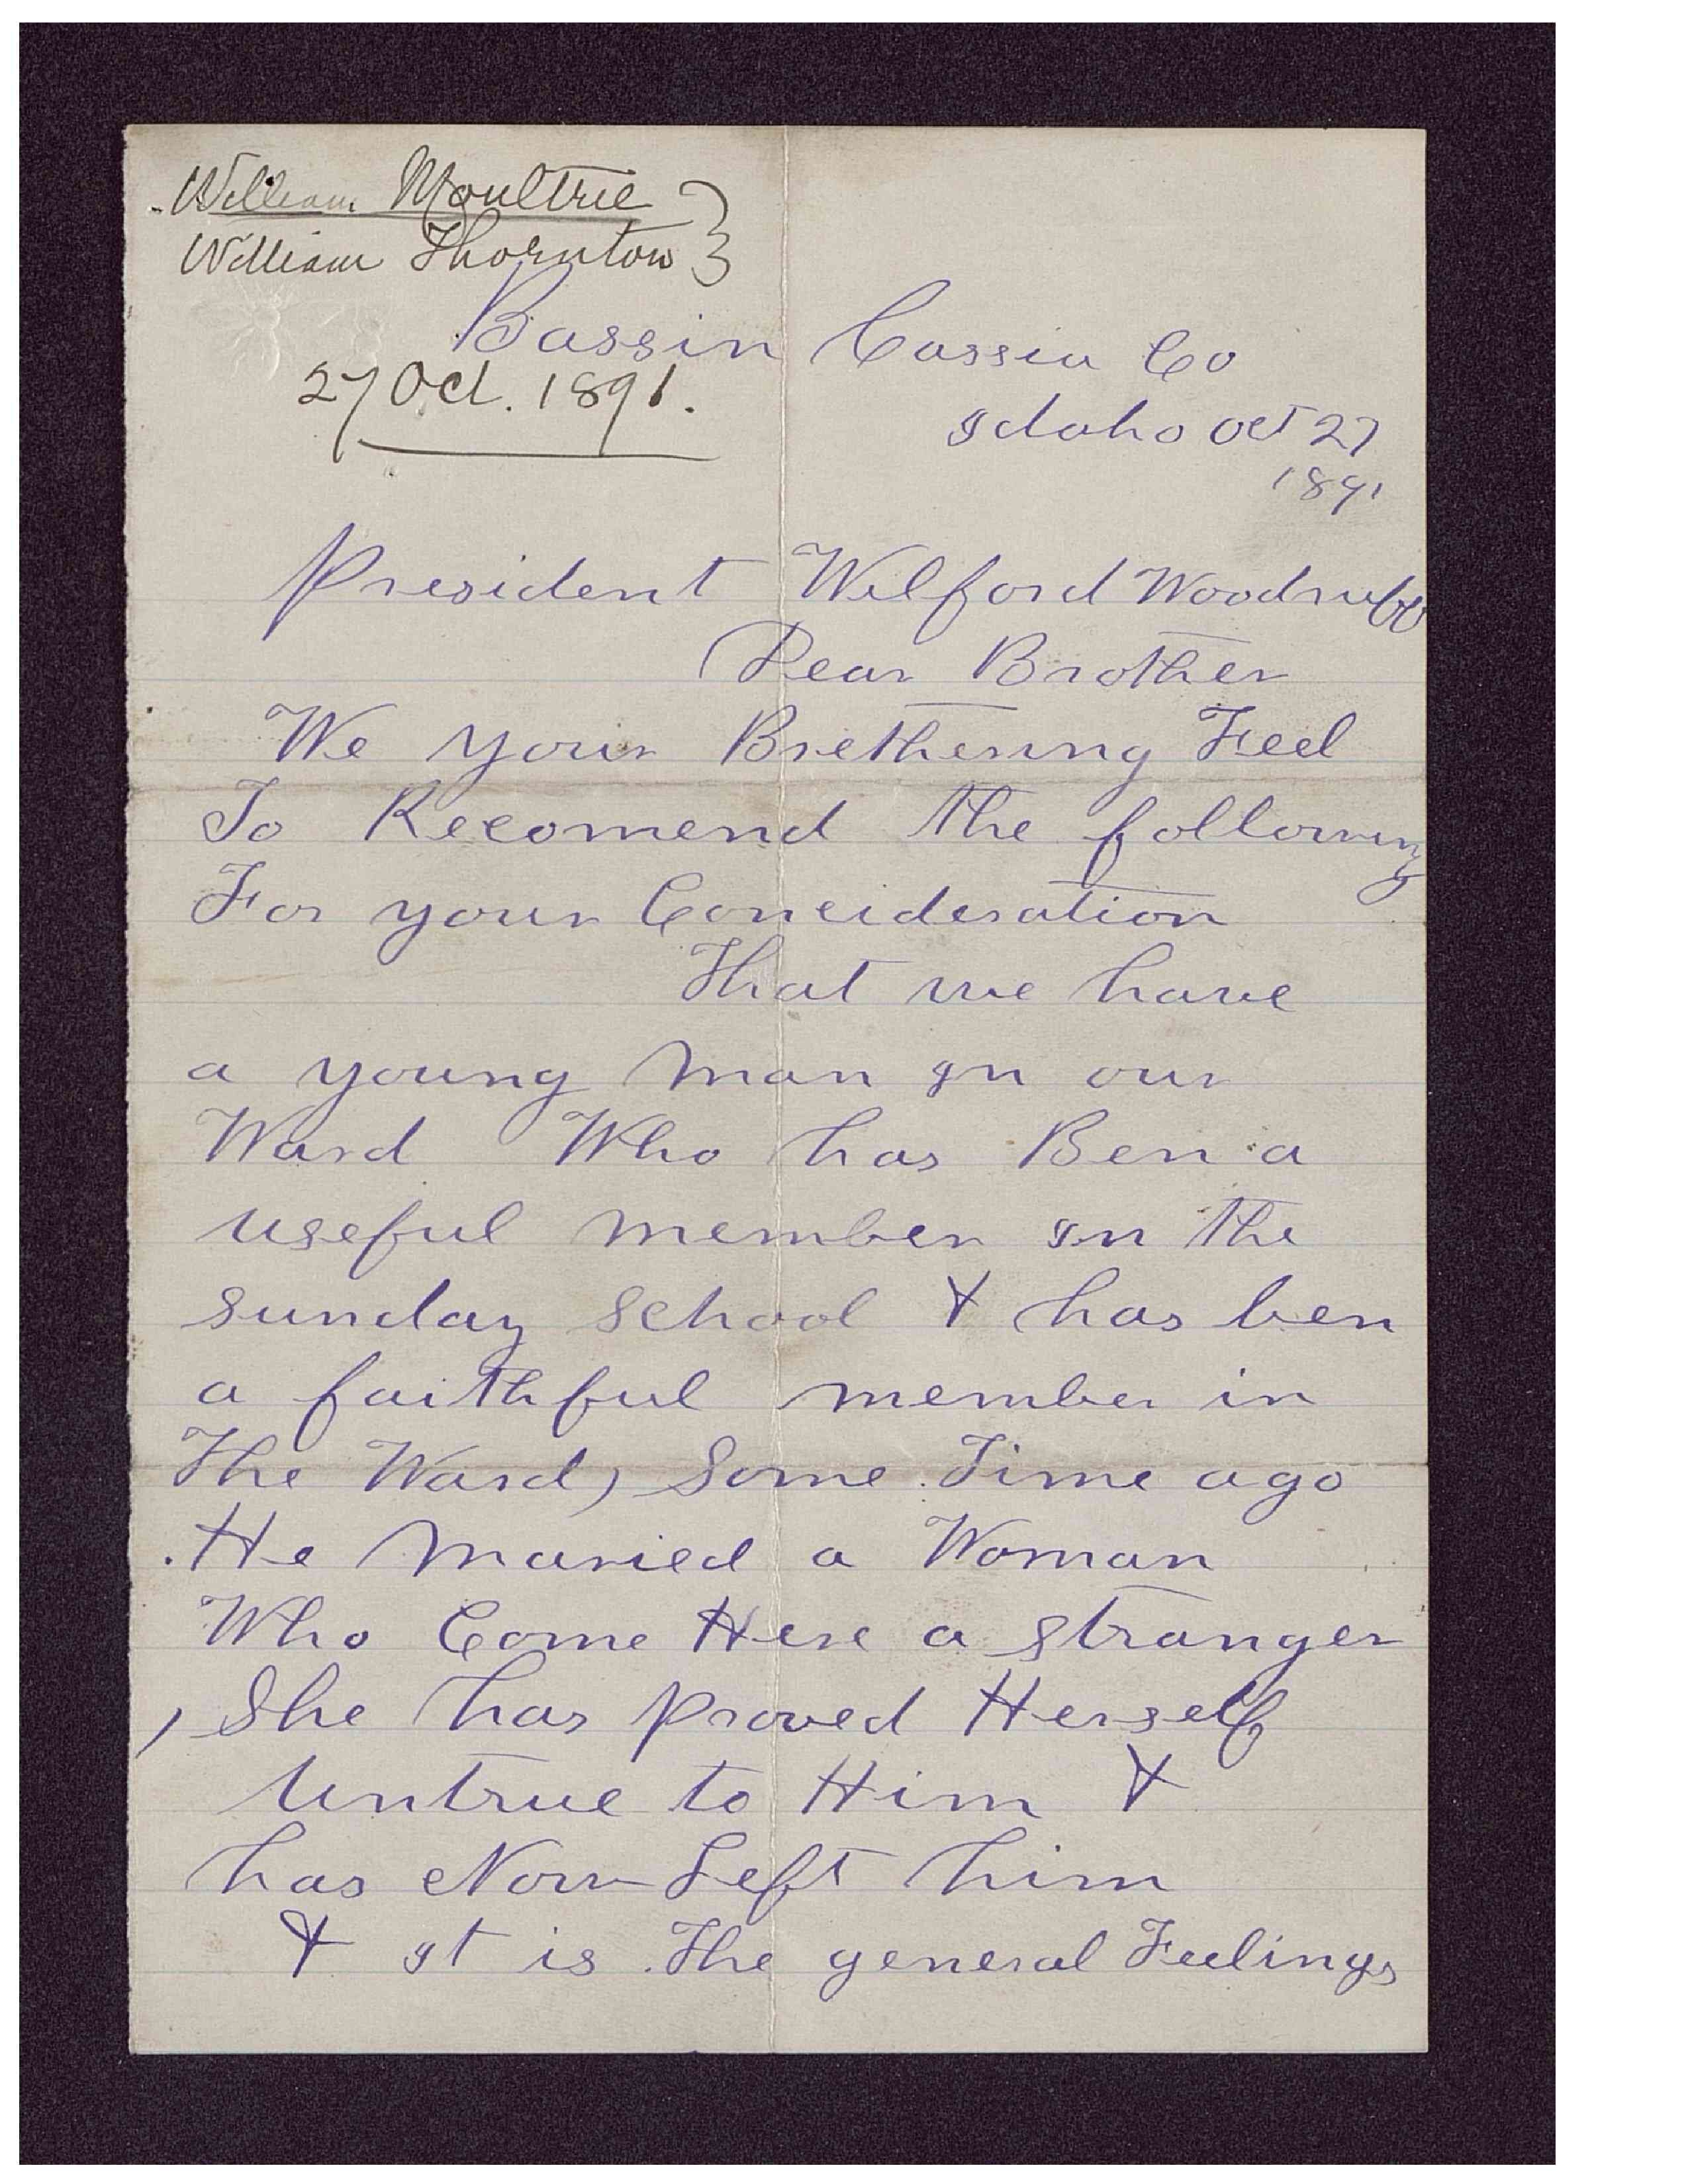 William Moultrie }
William Thornton }
Bassin Cassia Co
27 Oct. 1891.
Idaho Oct 27
1891
President Wilford Woodruff
Dear Brother
We your Brethering Feel
To Recomend the following
For your Concideration
That we have
a young man In our
Ward Who has Ben a
useful member In the
sunday school & has ben
a faithful member in
The Ward, Some Time ago
He Maried a Woman
Who Come Here a stranger
, She has proved Herself
Untrue to Him &
has Now Left him
& It is The general Feelings